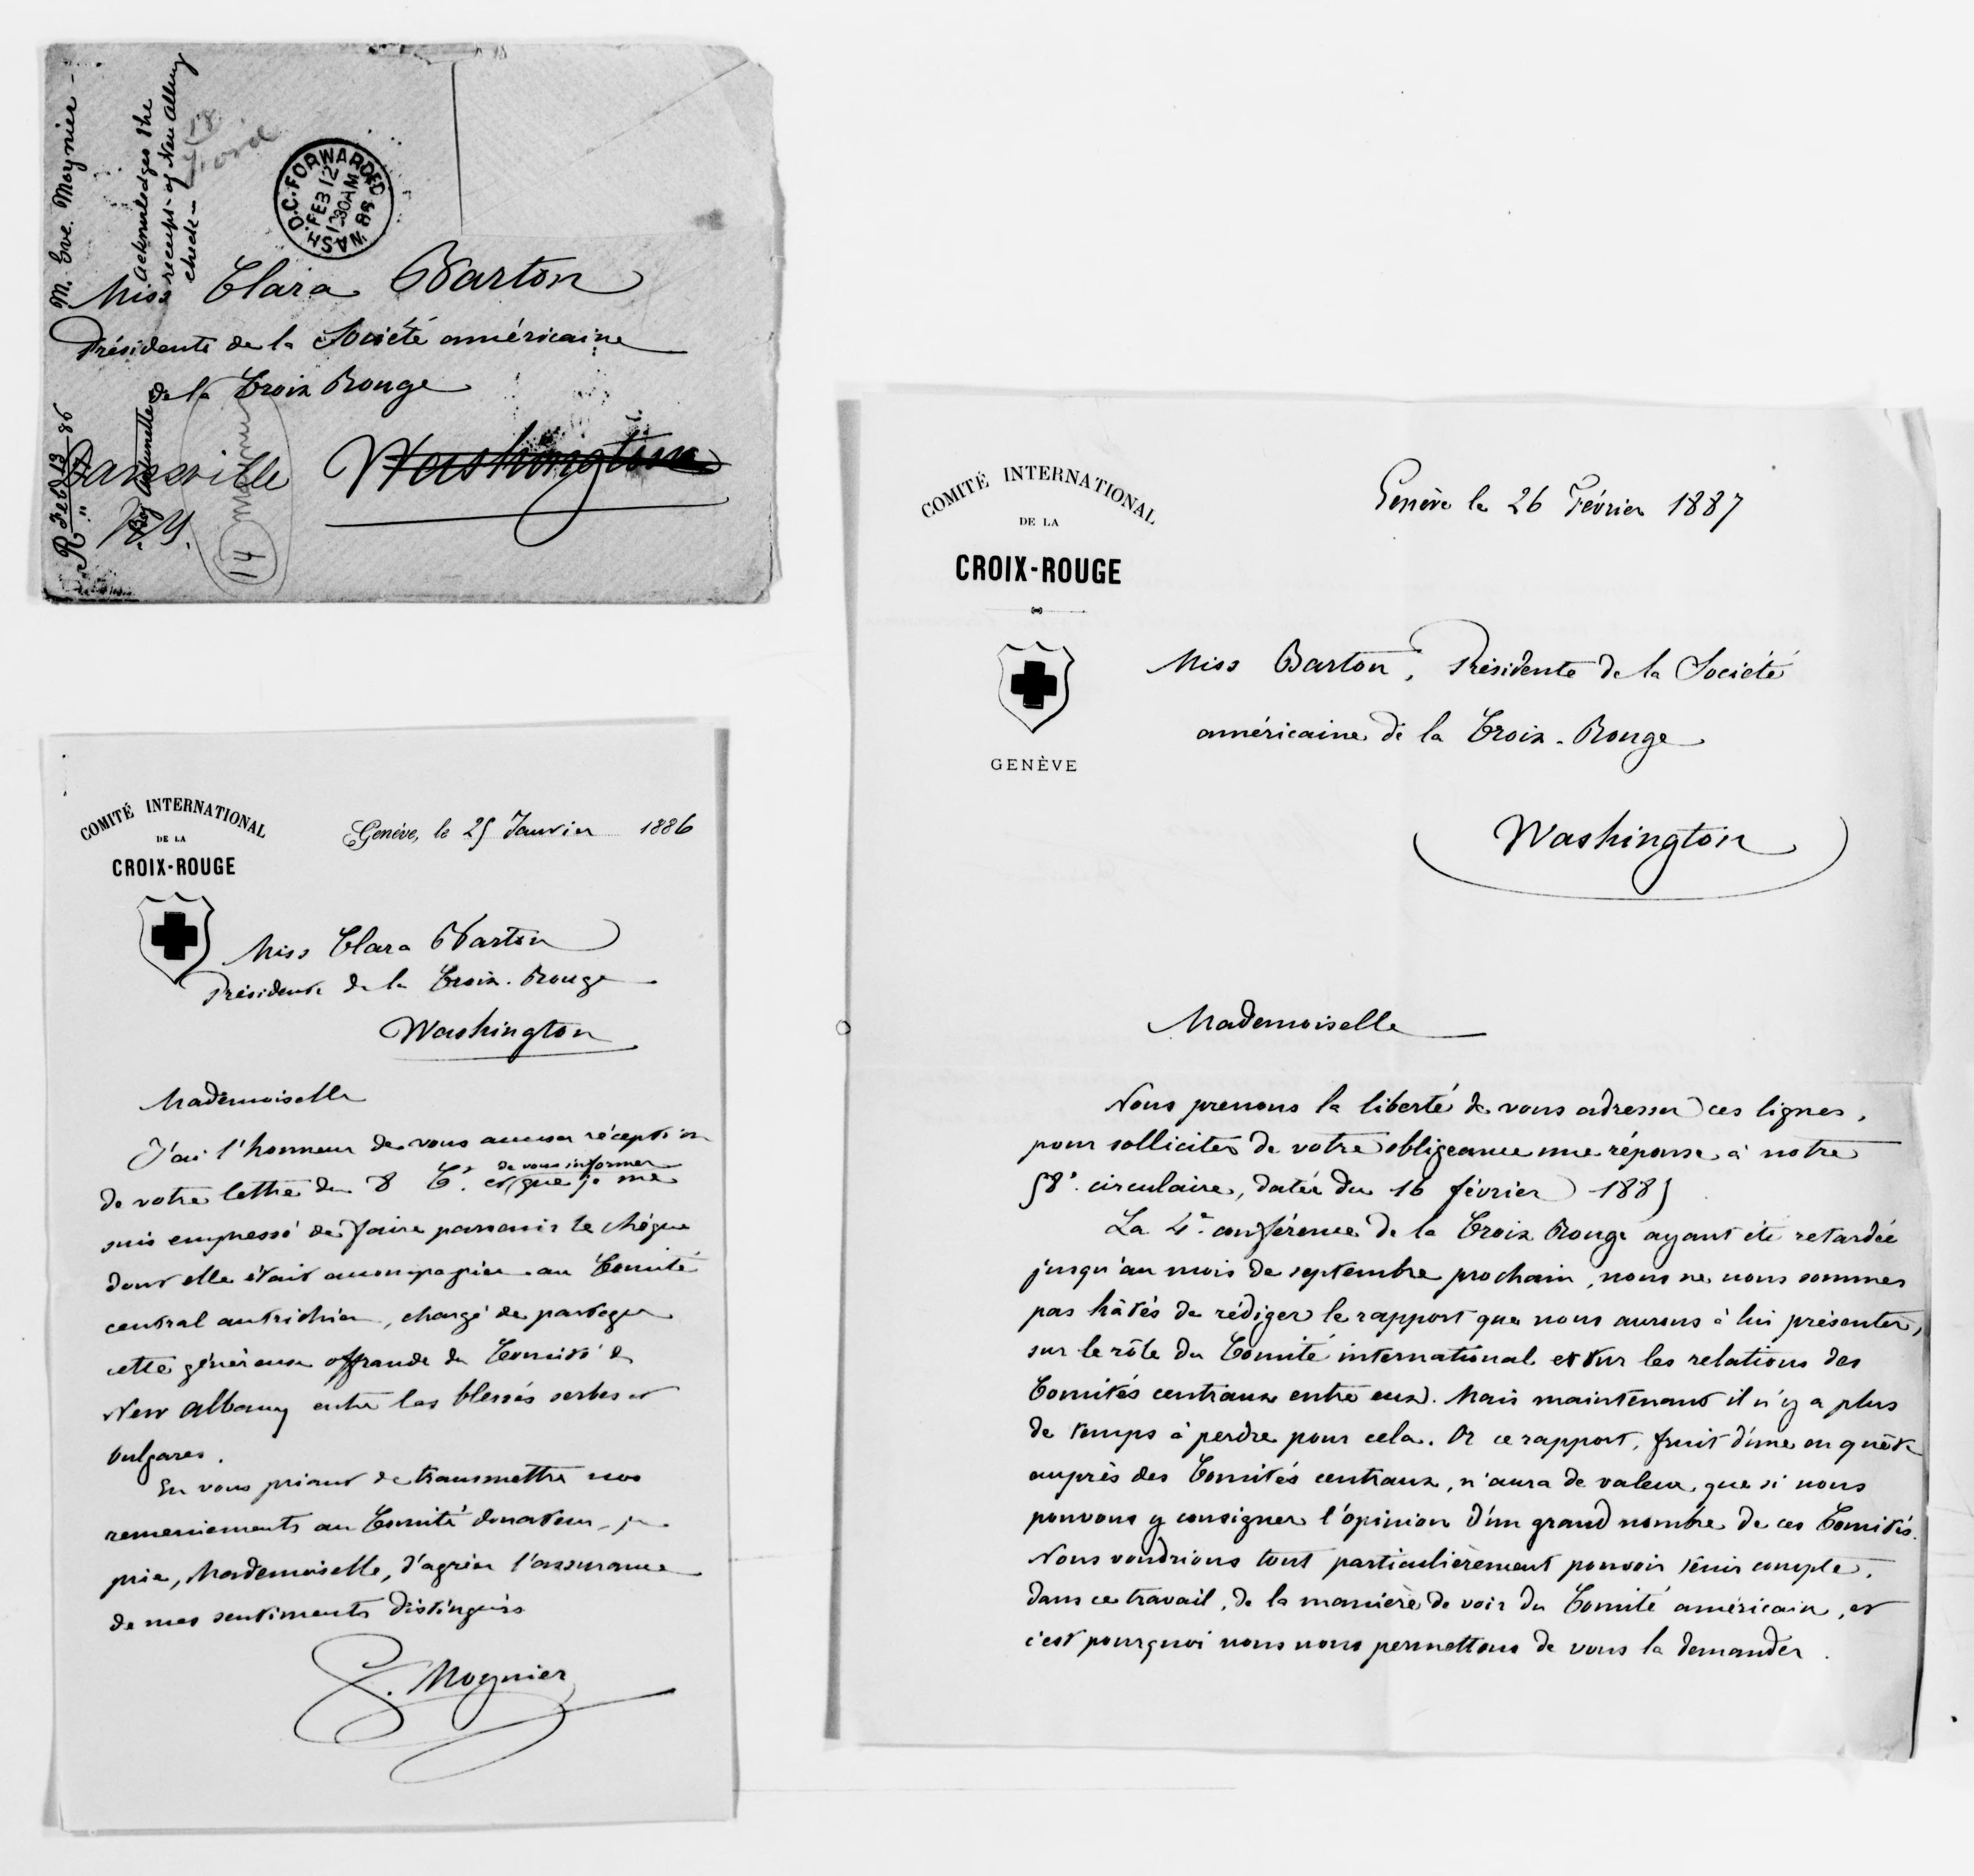 M. Gve. Moynier -
acknowledges the
receipt of New Albany
check -
WASH. D.C. FORWARDED
FEB 12
1230AM
86
Miss Clara Barton
Présidente de la Société américaine
de la Croix Rouge
Washington
Dansville
N.Y.
R Feb 13 86
14
COMITÉ INTERNATIONAL
DE LA
CROIX-ROUGE
Genève, le 25 Janvier 1886
Miss Clara Barton
Présidente de la Croix-Rouge
Washington
Mademoiselle
J'ai l'honneur de vous accuser réception
de vous informer
de votre lettre du 8 Ct. et que je me
suis empressé de faire parvenir le chèque
dont elle était accompagnée au Comité
central autrichien, chargé de partager
cette généreuse offrande du Comité de
New Albany entre les blessés serbes et
bulgares.
En vous priant de transmettre nos
remerciements au Comité donateur, je
prie, Mademoiselle, d'agréer l'assurance
de mes sentiments distingués
G. Moynier
COMITÉ INTERNATIONAL
DE LA
CROIX-ROUGE
GENÈVE
Genève le 26 Février 1887
Miss Barton, Présidente de la Société
américaine de la Croix-Rouge
Washington
Mademoiselle
Nous prenons la liberté de vous adresser ces lignes,
pour solliciter de votre obligeance une réponse à notre
58e. circulaire, datée du 16 février 1885
La 4e. conférence de la Croix Rouge ayant été retardée
jusqu'au mois de septembre prochain, nous ne nous sommes
pas hâtés de rédiger le rapport que nous aurons à lui présenter,
sur le rôle du Comité international et sur les relations des
Comités centraux entre eux. Mais maintenant il n'y a plus
de temps à perdre pour cela. Or ce rapport, fruit d'une enquête
auprès des Comités centraux, n'aura de valeur que si nous
pouvons y consigner l'opinion d'un grand nombre de ces Comités.
Nous voudrions tout particulièrement pouvoir tenir compte,
dans ce travail, de la manière de voir du Comité américain, et
c'est pourquoi nous nous permettons de vous la demander.